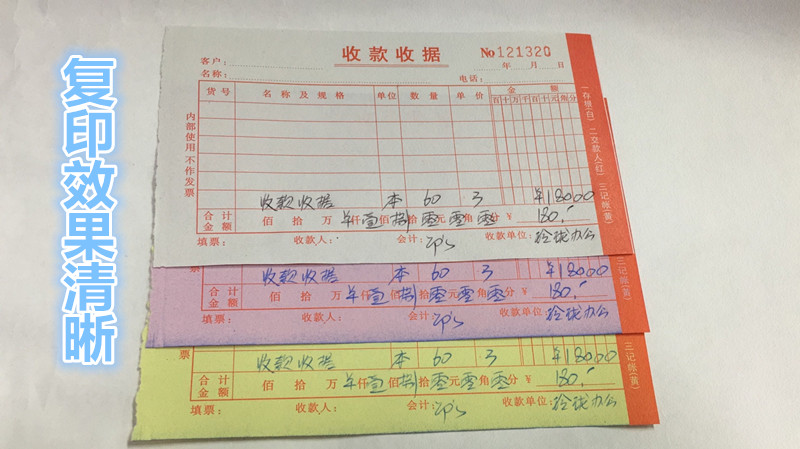 复印效果清晰
收款收据
No 121320
客户：
年 月 日
名称：
电话：
货号 名称及规格 单位 数量 单价 金额
百十万千百十元角分
内部使用 不作发票
一存根(白) 二交款人(红) 三记帐(黄)
收款收据 本 60 3 ¥18000
合计金额 佰 拾 万 仟壹佰捌拾零元零角零分 ¥ 180.
填票： 收款人： 会计： 收款单位：玲珑办公
三记帐(黄)
票
收款收据 本 60 3 ¥18000
合计金额 佰 拾 万 仟壹佰捌拾零元零角零分 ¥ 180.
填票： 收款人： 会计： 收款单位：玲珑办公
三记帐(黄)
票
收款收据 本 60 3 ¥18000
合计金额 佰 拾 万 仟壹佰捌拾零元零角零分 ¥ 180.
填票： 收款人： 会计： 收款单位：玲珑办公